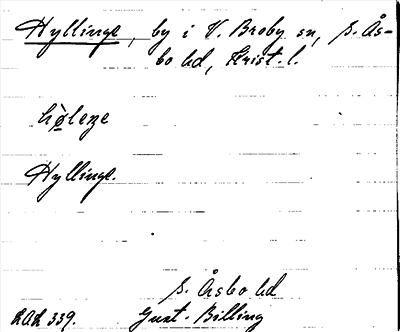 Hyllinge, by i V. Broby sn, S. Ås-
bo hd, Krist. l.
hø̀leŋe
Hyllinge.
S. Åsbo hd
RAÄ 339. Gust. Billing